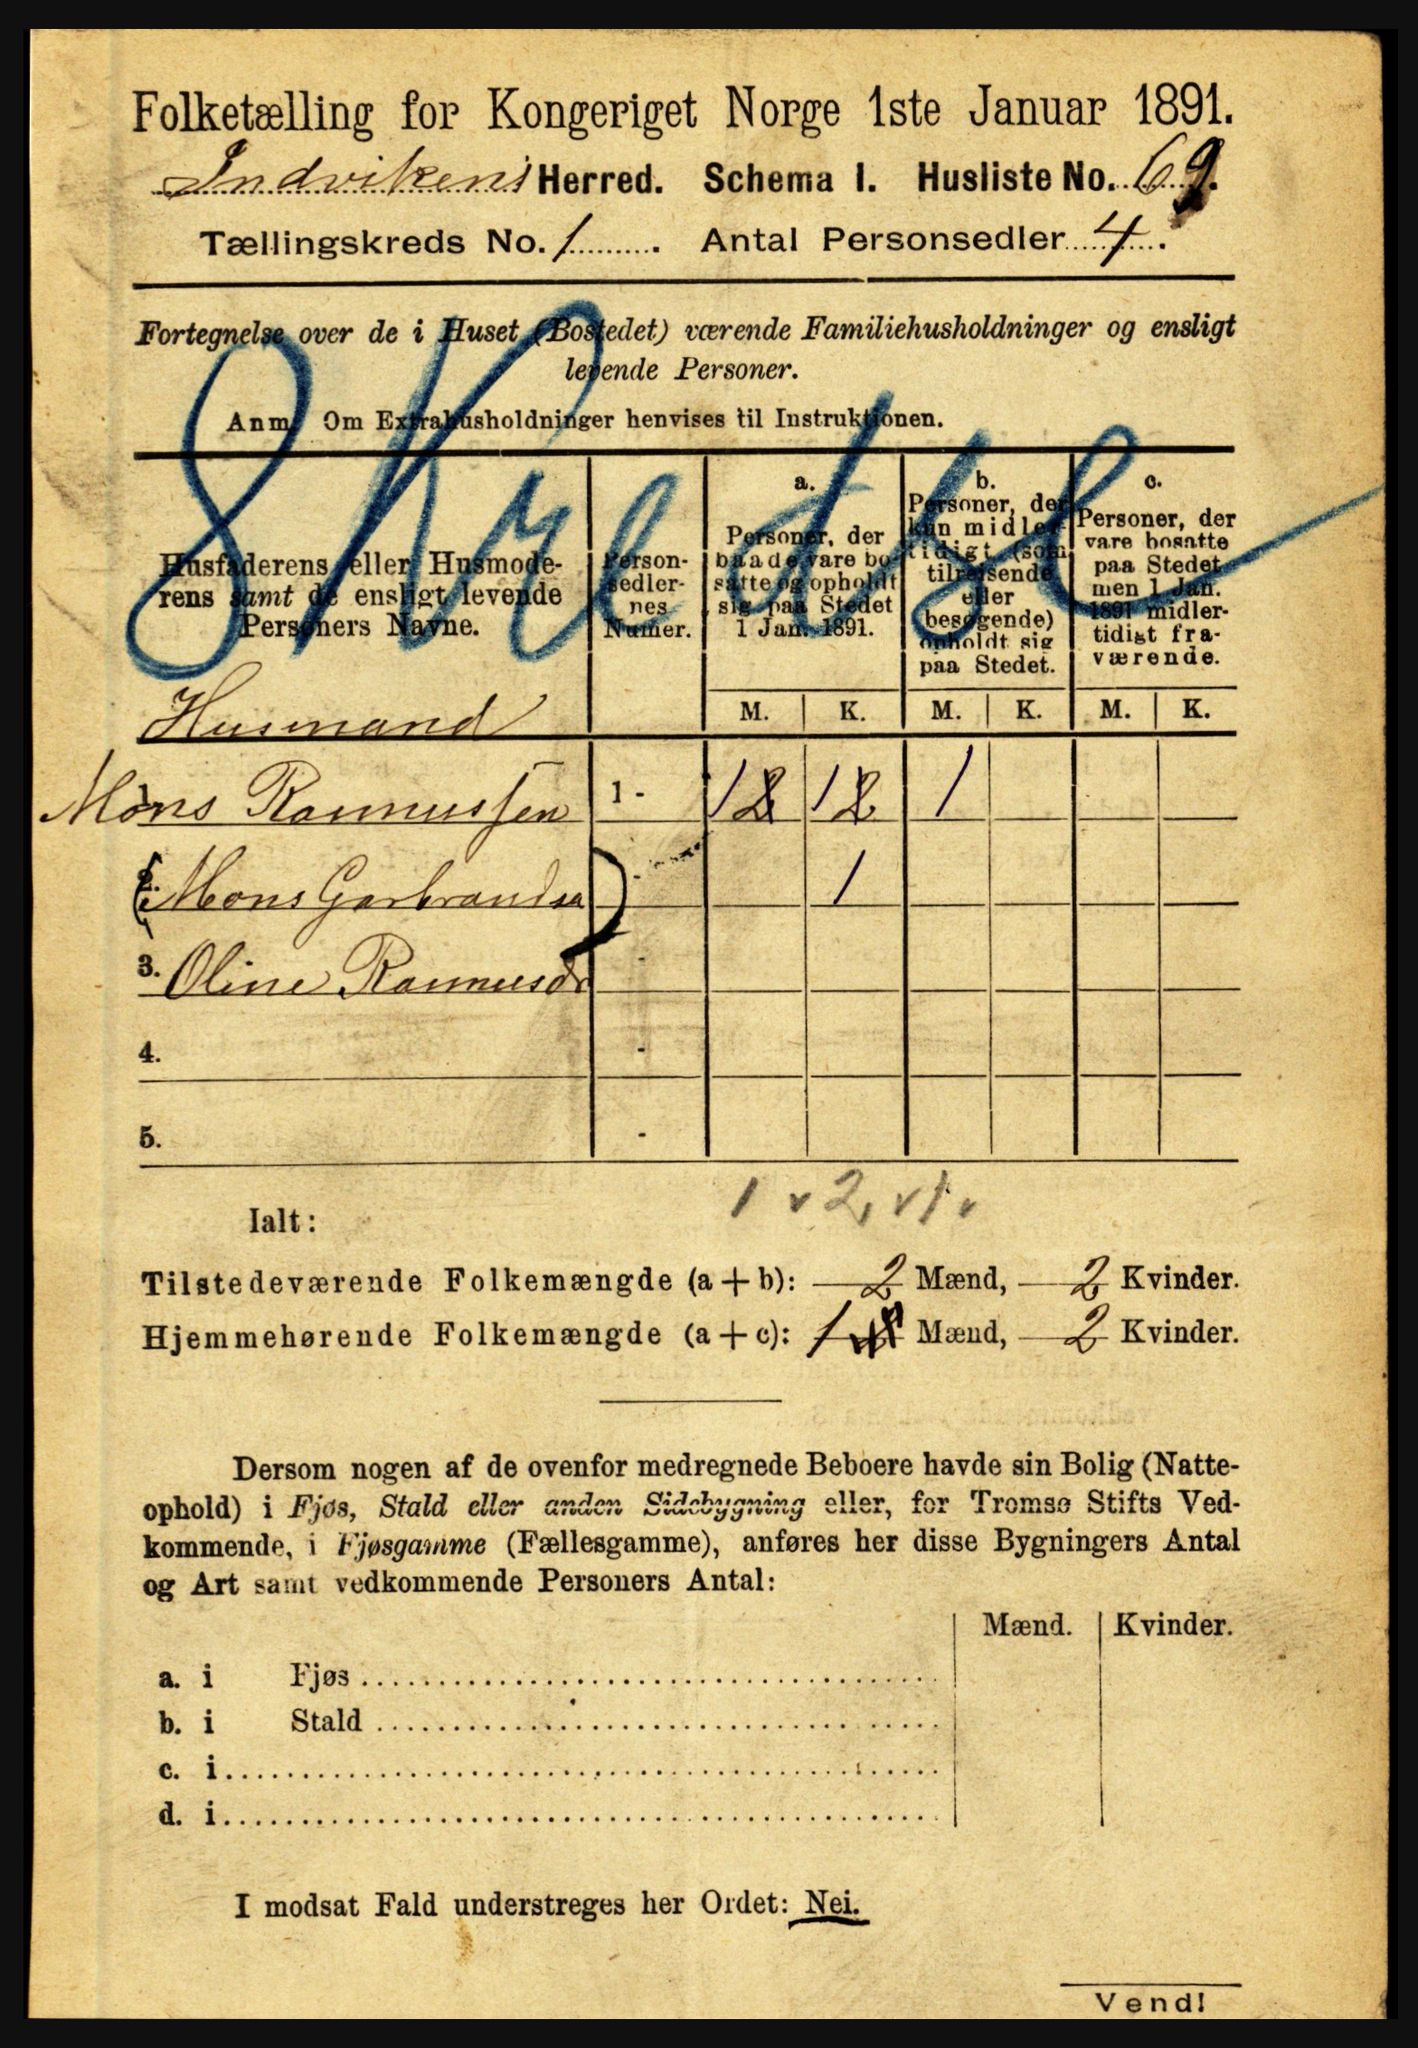 Folketælling for Kongeriget Norge 1ste Januar 1891.
Indvikens Herred. Schema I. Husliste No. 69.
Tællingskreds No. 1. Antal Personsedler 4.
Fortegnelse over de i Huset (Bostedet) værende Familiehusholdninger og ensligt
levende Personer.
Anm. Om Extrahusholdninger henvises til Instruktionen.
8 Kredse
Husfaderens eller Husmode-
rens samt de ensligt levende
Personers Navne.
Person-
sedler-
nes
Numer.
a.
Personer, der
baade vare bo-
satte og opholdt
sig paa Stedet
1 Jan. 1891.
b.
Personer, der
kun midler-
tidigt (som
tilreisende
eller
besøgende)
opholdt sig
paa Stedet.
c.
Personer, der
vare bosatte
paa Stedet
men 1 Jan.
1891 midler-
tidigt fra-
værende.
M. K. M. K. M. K.
Husmand
Mons Rasmussen 1 - 1 2 1 2 1
2. Mons Garbrandsen - 1
3. Oline Rasmusdr -
4. -
5. -
1 v 2, v 1 v
Ialt:
Tilstedeværende Folkemængde (a + b): 2 Mænd, 2 Kvinder.
Hjemmehørende Folkemængde (a + c): 1 Mænd, 2 Kvinder.
Dersom nogen af de ovenfor medregnede Beboere havde sin Bolig (Natte-
ophold) i Fjøs, Stald eller anden Sidebygning eller, for Tromsø Stifts Ved-
kommende, i Fjøsgamme (Fællesgamme), anføres her disse Bygningers Antal
og Art samt vedkommende Personers Antal:
Mænd. Kvinder.
a. i Fjøs
b. i Stald
c. i
d. i
I modsat Fald understreges her Ordet: Nei.
Vend!